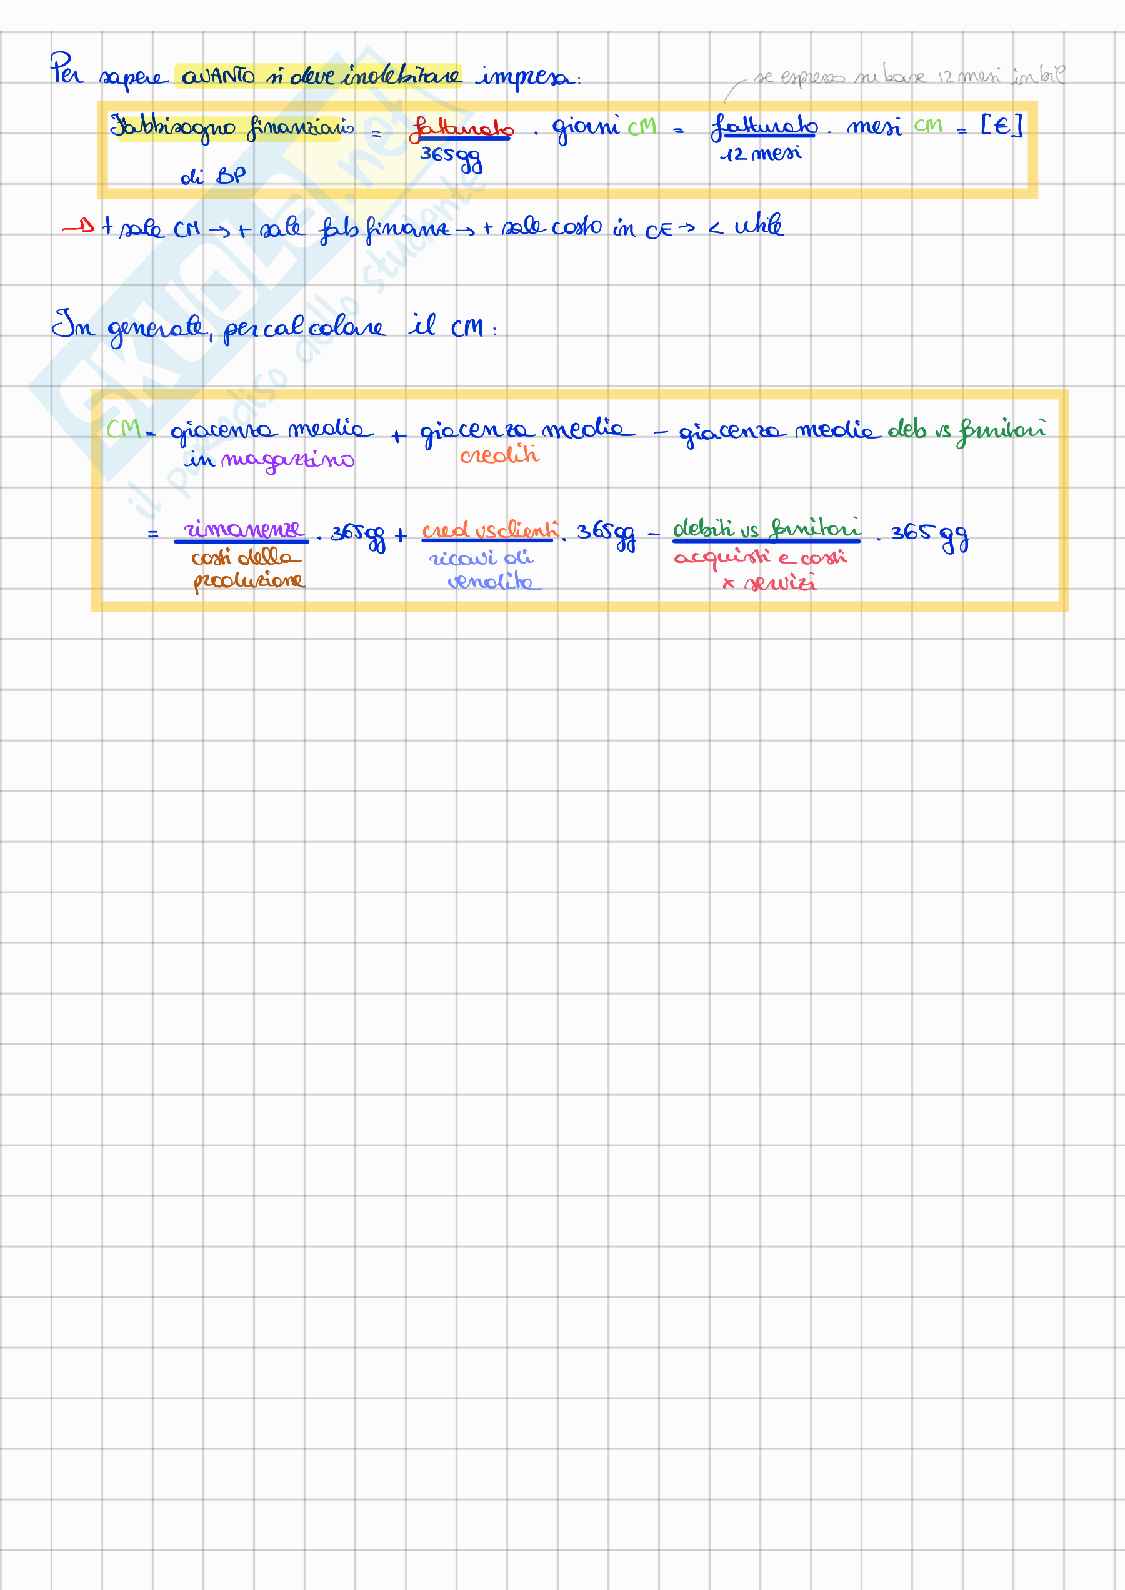 Per sapere QUANTO si deve indebitare impresa:
se espresso su base 12 mesi in bil
Fabbisogno finanziario = fatturato . giorni CM = fatturato . mesi CM = [€]
365gg 12 mesi
di BP
→ + sale CM → + sale fab finanz → + sale costo in CE → < utile
In generale, per calcolare il CM:
CM = giacenza media + giacenza media - giacenza media deb vs fornitori
in magazzino crediti
= rimanenze . 365gg + cred vs clienti . 365gg - debiti vs fornitori . 365 gg
costi della ricavi di acquisti e costi
produzione vendita x servizi
SKUOLA.net
il paradiso dello studente